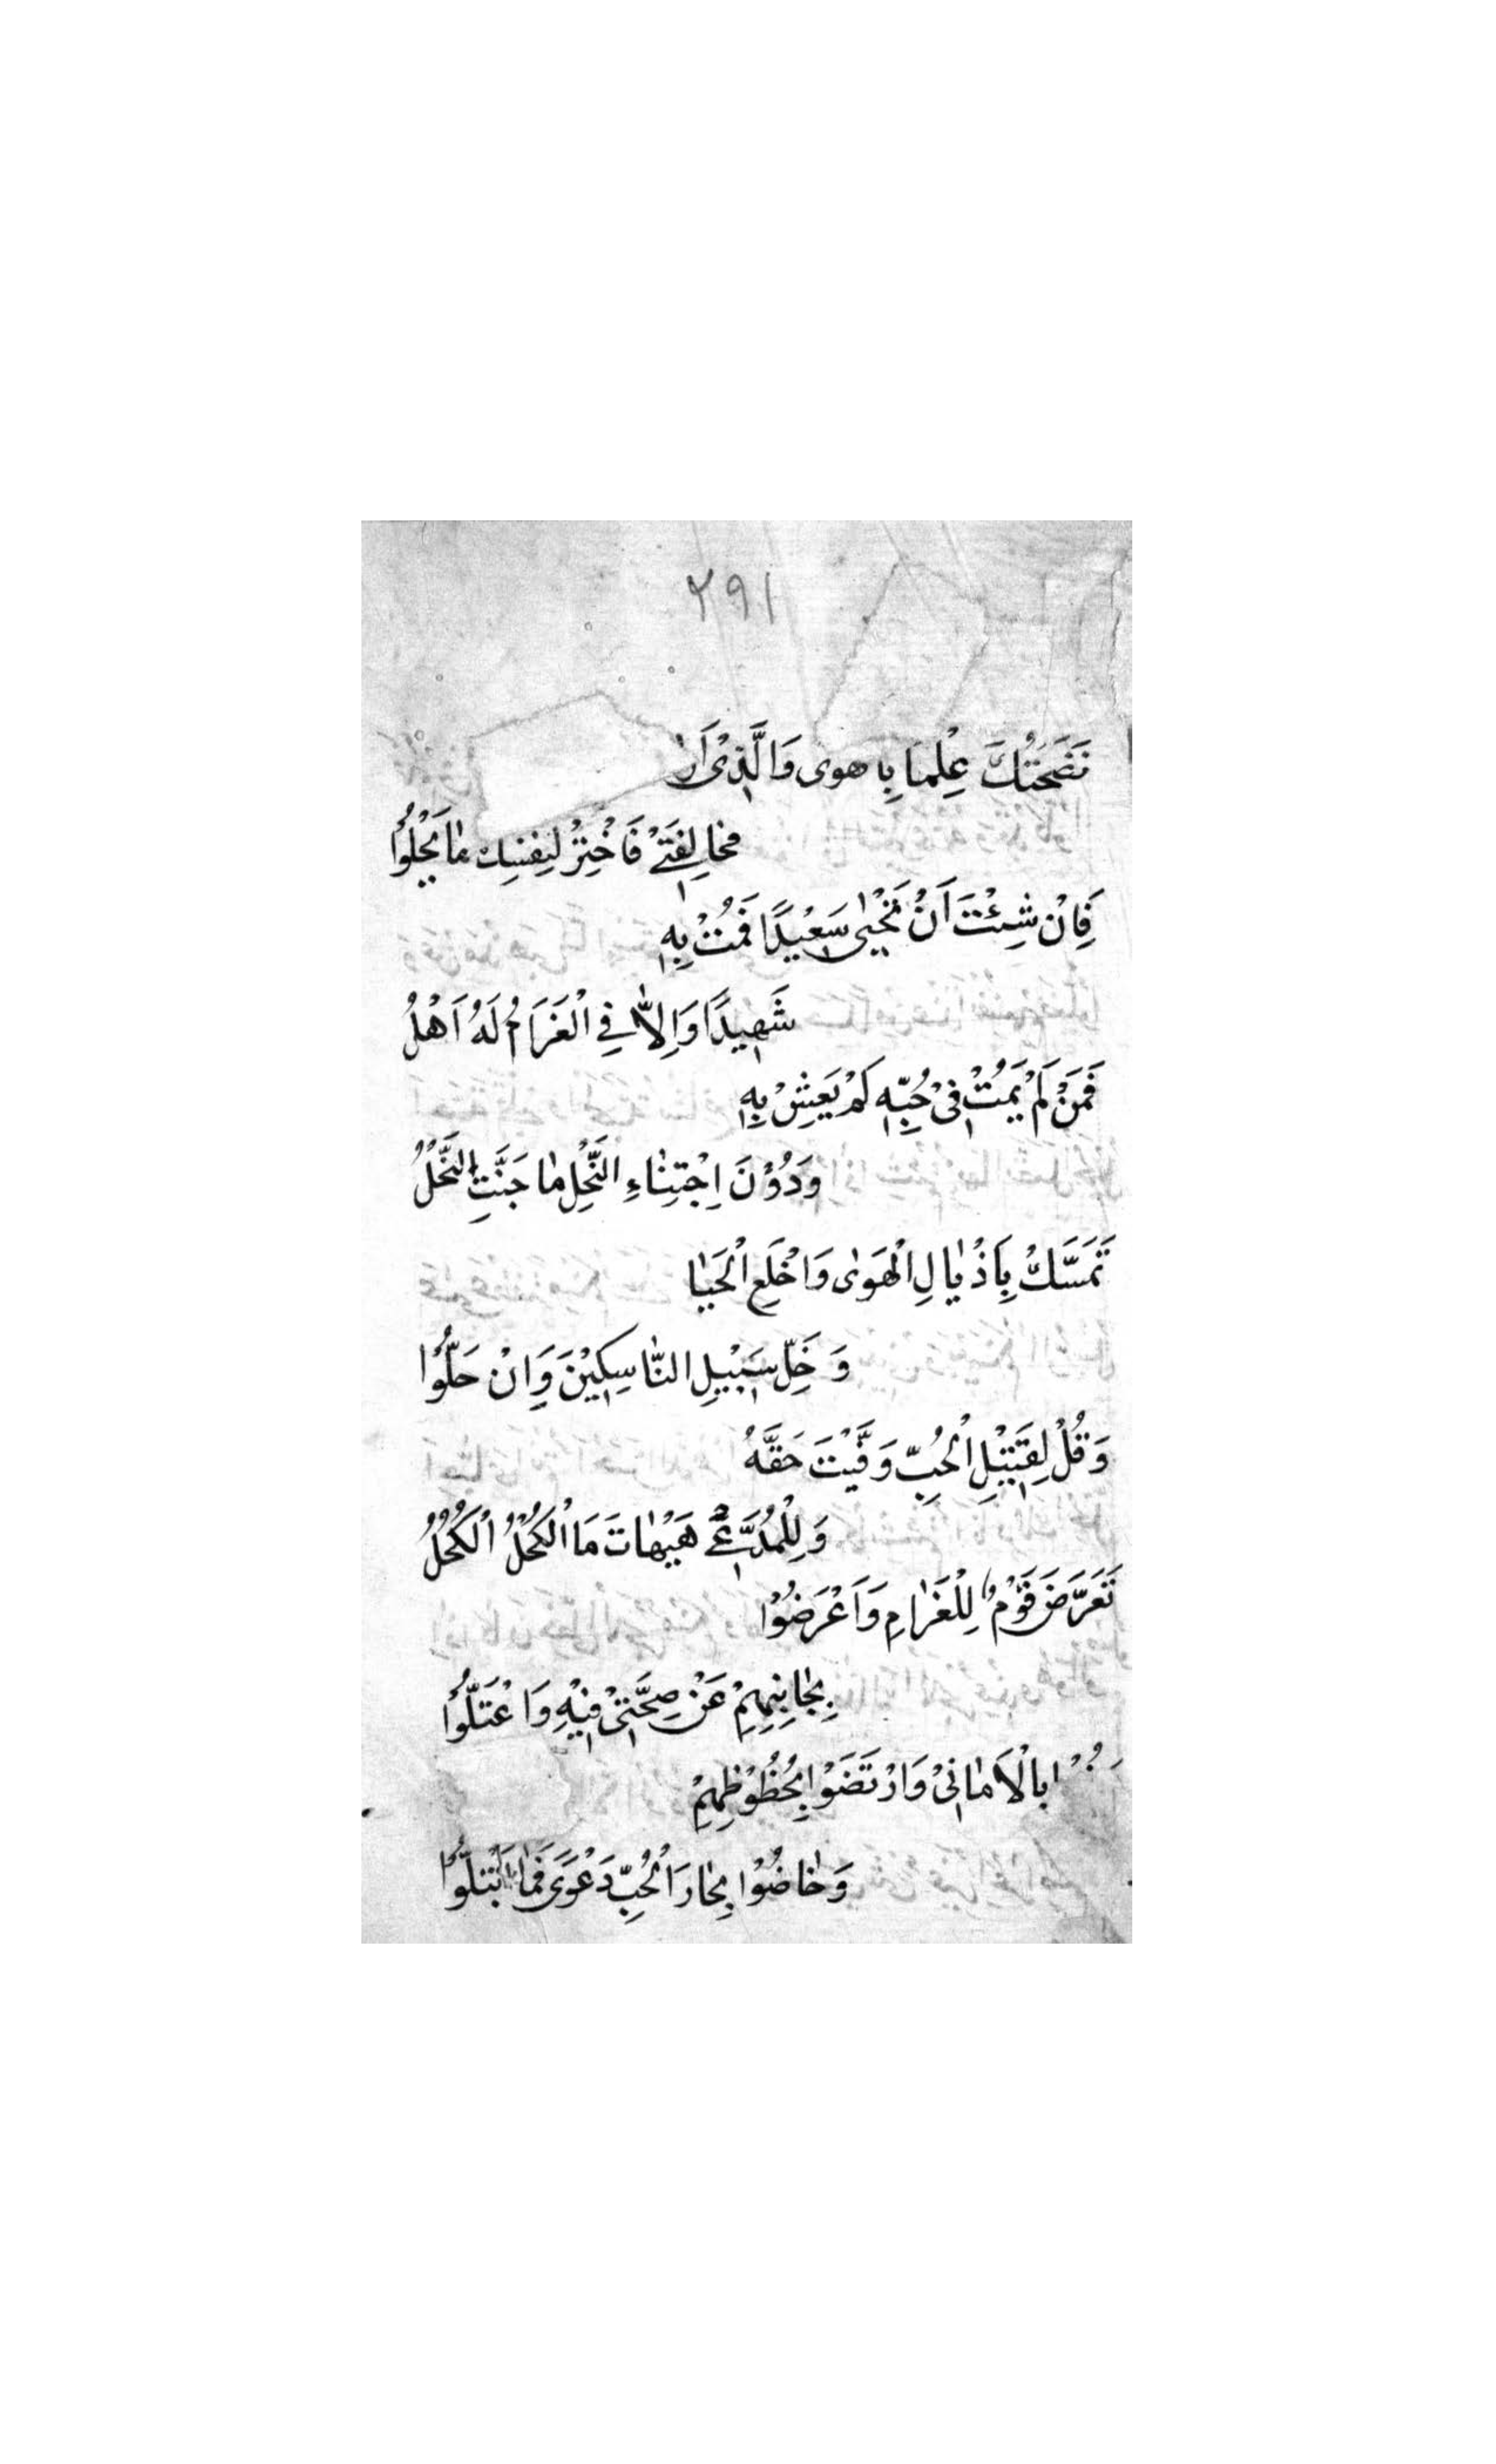 ٢٩١
نَصَحْتُكَ عِلْمًا بِاهوى وَالَّذِىْ اَرٰ
مخالِفَتِىْ فَاخْتَرْ لِنَفْسِكَ مٰا يَحْلُوْا
فَاِنْ شِئْتَ اَنْ تَحْيٰى سَعِيْدًا فَمُتْ بِهِ
شَهِيدًا وَاِلاّٰ فِى الْغَرَامُ لَهُ اَهْلُ
فَمَنْ لَمْ يَمُتْ فِىْ حُبِّهِ لَمْ يَعِشْ بِهِ
وَدُوْنَ اِجْتِنٰاءِ النَّحْلِ مٰا جَنَّتِ النَّحْلُ
تَمَسَّكْ بِاَذْيٰالِ الْهَوٰى وَاخْلَعِ الْحَيٰا
وَ خَلِّ سَبِيْلِ النّٰاسِكِيْنَ وَاِنْ حَلُّوْا
وَقُلْ لِقَتِيْلِ الْحُبِّ وَفَّيْتَ حَقَّهُ
وَ لِلْمُدَّعِىْ هَيْهٰاتَ مَا الْكَحْلُ الْكُحْلُ
تَعَرَّضَ قَوْمٌ لِلْغَرٰامِ وَاَعْرَضُوْا
بِجٰانِبِهِمْ عَنْ صِحَّتِىْ فِيْهِ وَاعْتَلُّوْا
بِالْاَمٰانِىْ وَارْتَضَوْا بِحُظُوْظِهِمْ
وَخٰاضُوْا بِحٰارَ الْحُبِّ دَعْوَى فَمَا ابْتَلُّوْا